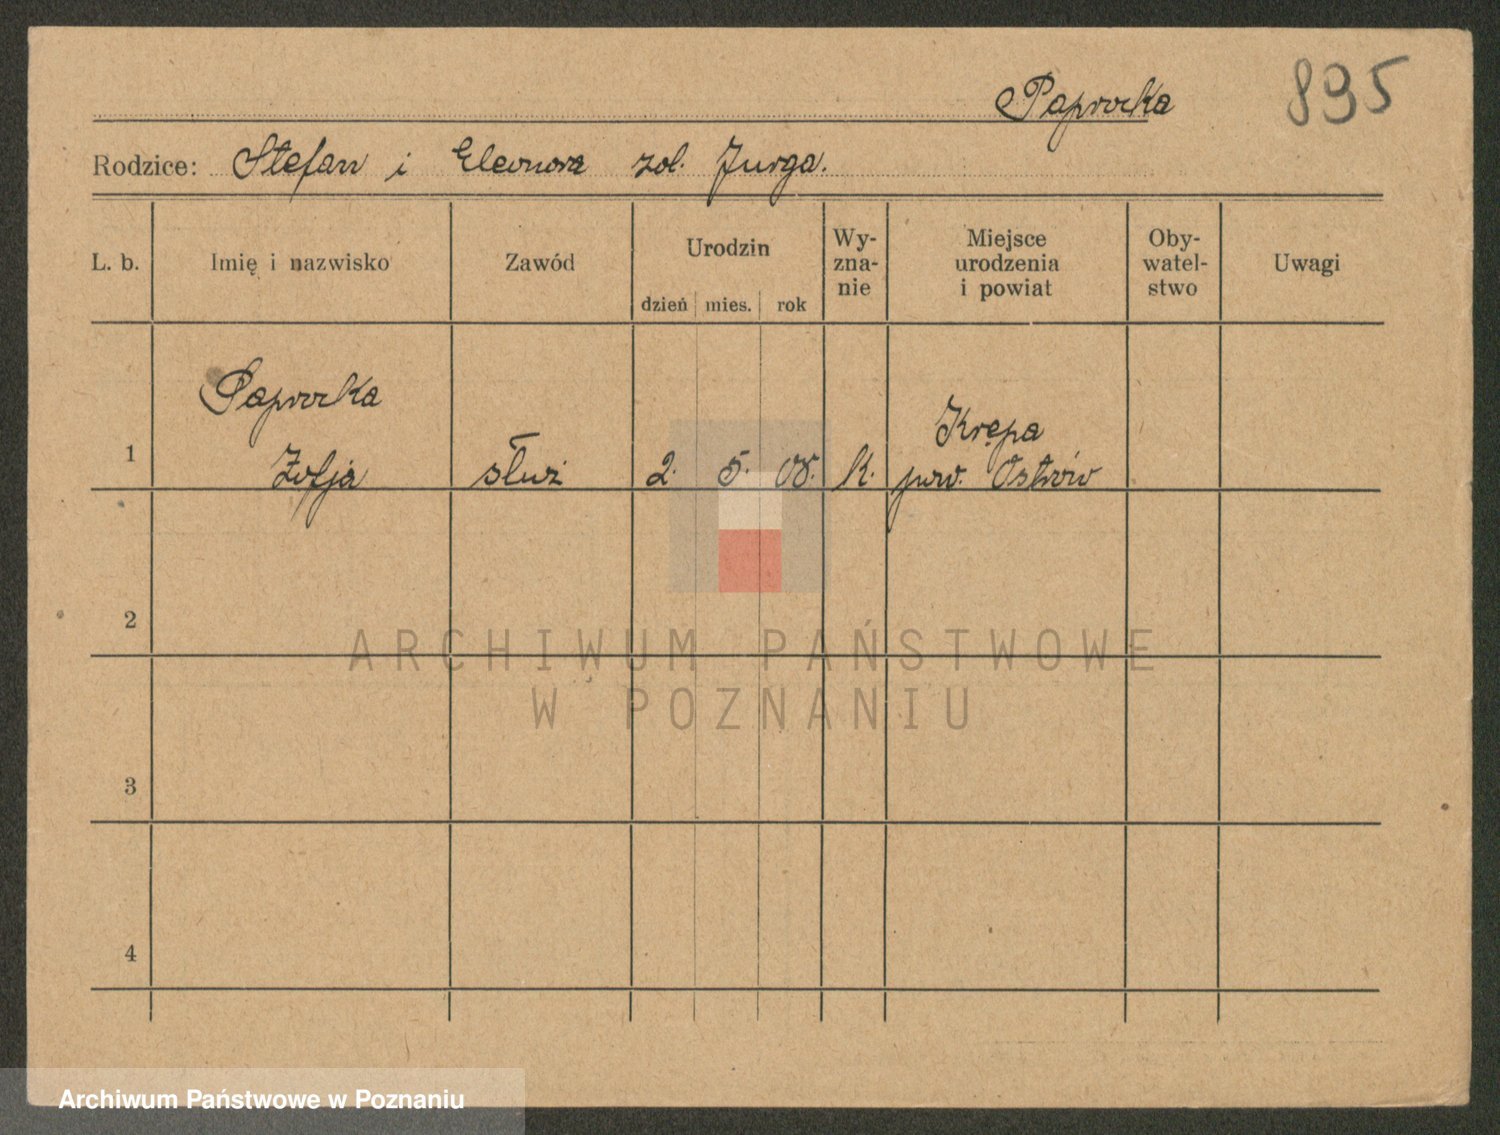 Paprocka 895
Rodzice: Stefan i Eleonora zol. Jurga.
L. b. Imię i nazwisko Zawód Urodzin Wy-zna-nie Miejsce urodzenia i powiat Oby-watel-stwo Uwagi
dzień mies. rok
Paprocka
Krępa
1 Zofja służ 2. 5. 08. k. pow. Ostrów
2
ARCHIWUM PAŃSTWOWE
W POZNANIU
3
4
Archiwum Państwowe w Poznaniu